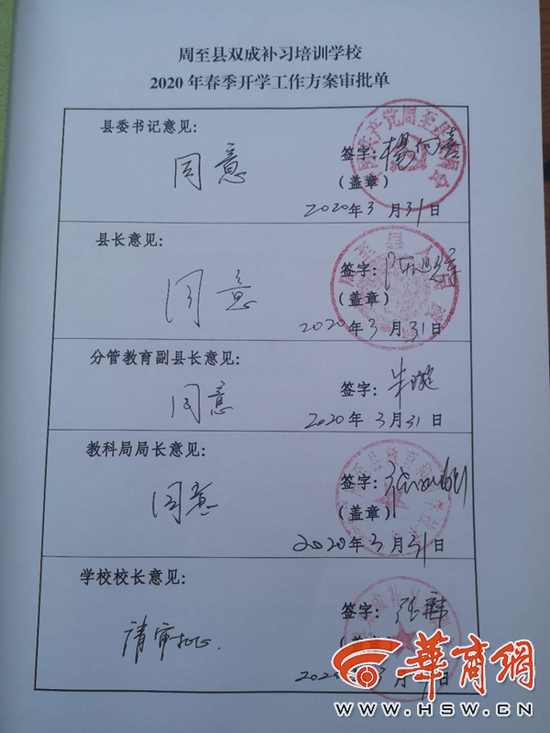 周至县双成补习培训学校
2020年春季开学工作方案审批单
县委书记意见：
同意
签字：杨向喜
（盖章）
2020年3月31日
县长意见：
同意
签字：
（盖章）
2020年3月31日
分管教育副县长意见：
同意
签字：
2020年3月31日
教科局局长意见：
同意
签字：
（盖章）
2020年3月31日
学校校长意见：
请审批。
签字：张
（盖章）
2020年3月 日
华商网
WWW.HSW.CN